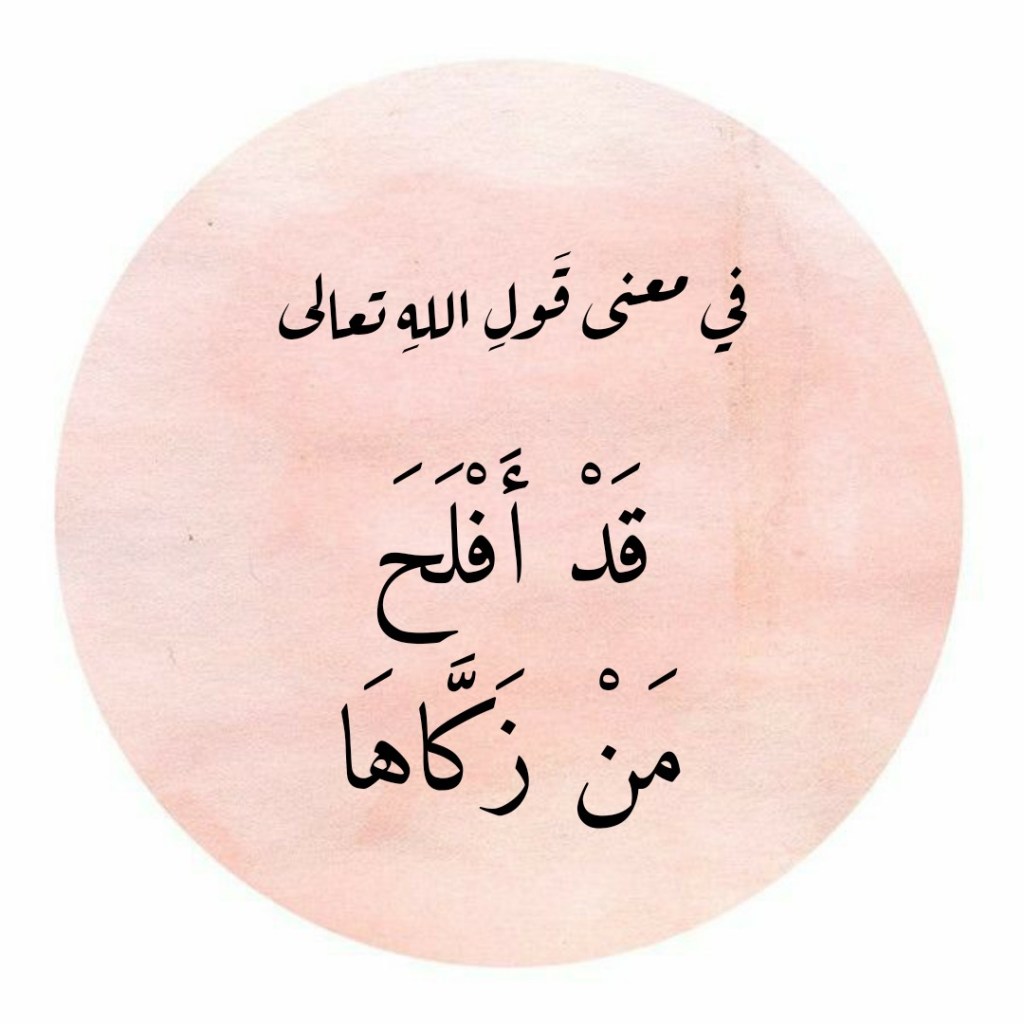 في معنى قَولِ اللهِ تعالى
قَدْ أَفْلَحَ
مَنْ زَكَّاهَا